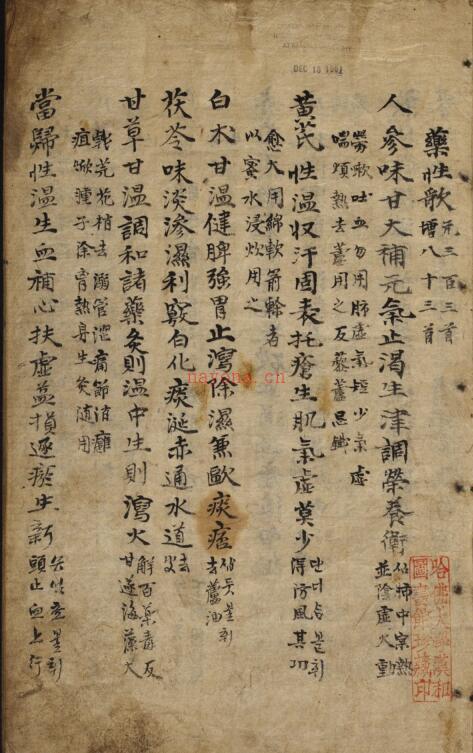 藥性歌 元三百三首
增八十三首
人參味甘大補元氣止渴生津調榮養衛 肺中實熱
並陰虛火動
勞咳吐血勿用肺虛氣短少氣虛
喘煩熱去蘆用之反藜蘆忌鐵
黃芪性溫収汗固表托瘡生肌氣虛莫少 단너삼불휘
得防風其功
愈大用綿軟箭幹者
以蜜水浸炒用之
白朮甘溫健脾強胃止瀉除濕兼歐痰痞 삽듓불휘
去蘆油
茯苓味淡滲濕利竅白化痰涎赤通水道 去皮
甘草甘溫調和諸藥灸則溫中生則瀉火 解百藥毒反
甘遂海藻大
戟芫花梢去溺管澁痛節消癰
疽焮腫子除胃熱身生灸随用
當歸性溫生血補心扶虛益損逐瘀生新 불휘
頭止血上行
哈佛大學漢和
圖書館珍藏印
DEC 18
nayona.cn